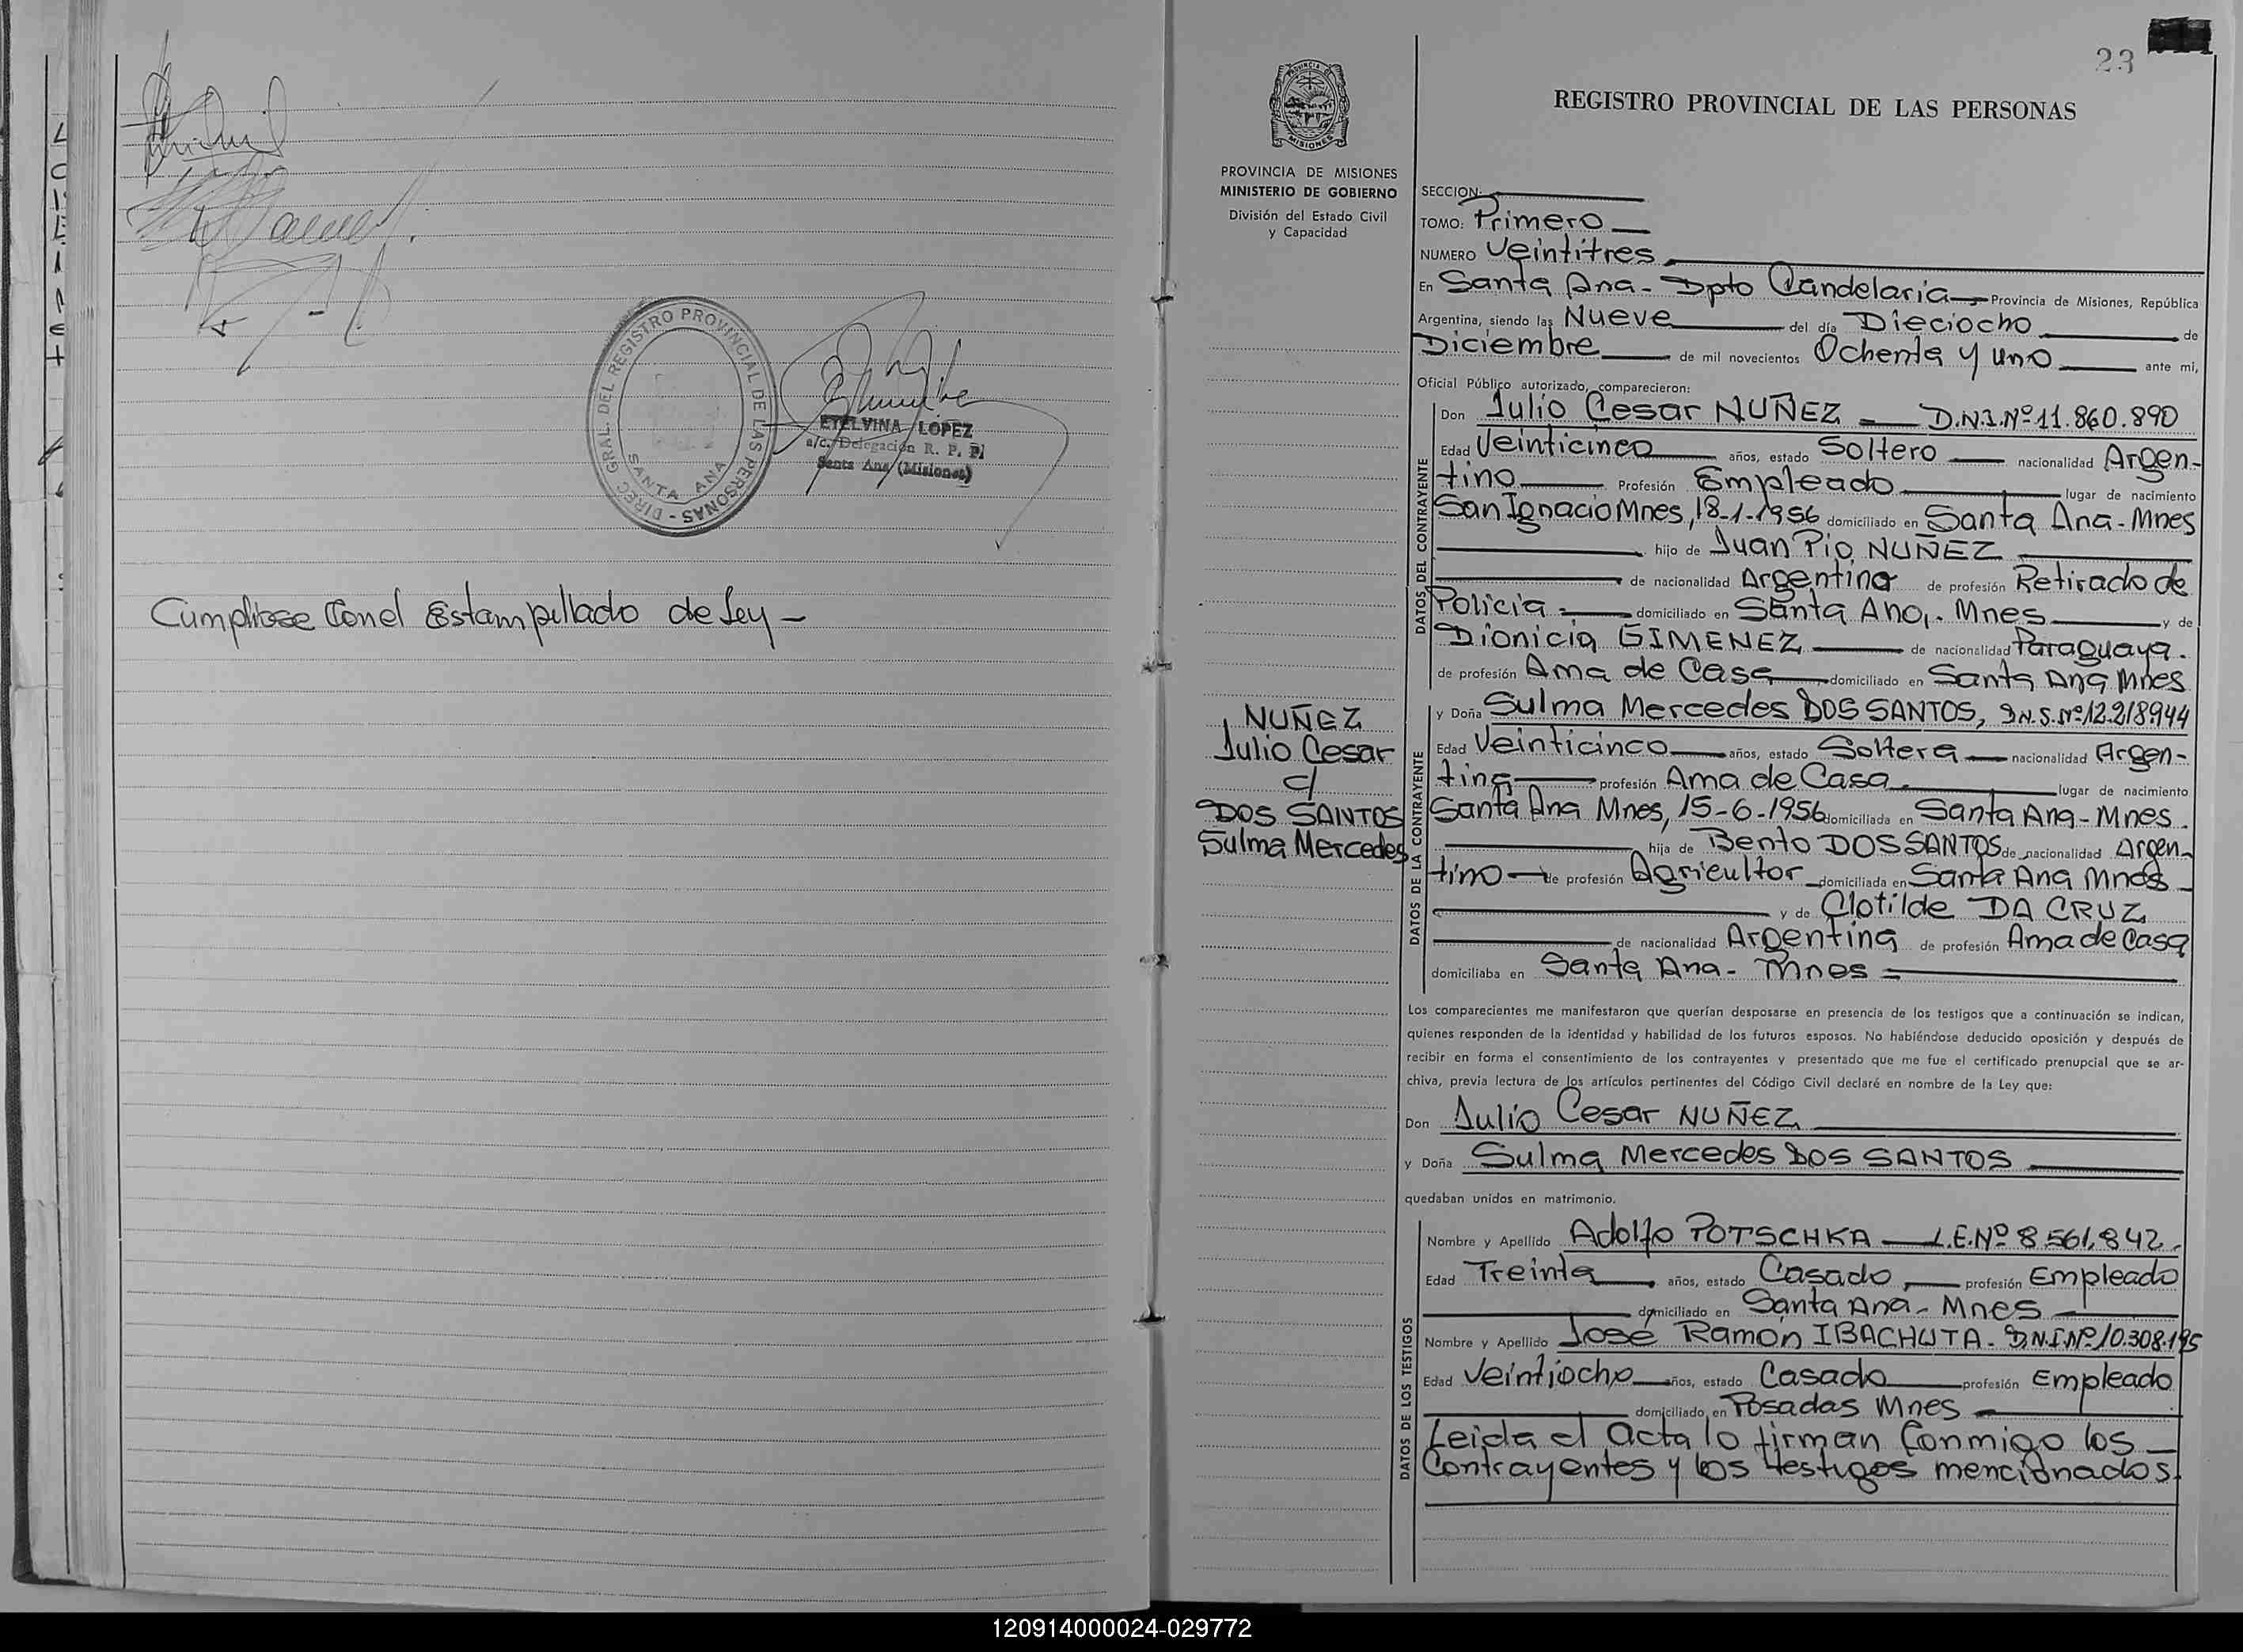 DIREC. GRAL. DEL REGISTRO PROVINCIAL DE LAS PERSONAS -
SANTA ANA
ETELVINA LOPEZ
a/c. Delegación R. P. P.
Santa Ana (Misiones)
Cumpliose Con el Estampillado de Ley -
23
PROVINCIA DE MISIONES
PROVINCIA DE MISIONES
MINISTERIO DE GOBIERNO
División del Estado Civil
y Capacidad
NUÑEZ
Julio Cesar
c/
DOS SANTOS
Sulma Mercedes
REGISTRO PROVINCIAL DE LAS PERSONAS
SECCION:
TOMO: Primero
NUMERO Veintitres
En Santa Ana - Dpto Candelaria Provincia de Misiones, República
Argentina, siendo las Nueve del día Dieciocho de
Diciembre de mil novecientos Ochenta y uno ante mi,
Oficial Público autorizado, comparecieron:
DATOS DEL CONTRAYENTE
Don Julio Cesar NUÑEZ - D.N.I.Nº 11.860.890
Edad Veinticinco años, estado Soltero nacionalidad Argen-
tino Profesión Empleado lugar de nacimiento
San Ignacio Mnes, 18-1-1956 domiciliado en Santa Ana - Mnes
hijo de Juan Pio NUÑEZ
de nacionalidad Argentina de profesión Retirado de
Policia domiciliado en Santa Ana, Mnes y de
Dionicia GIMENEZ de nacionalidad Paraguaya.
de profesión Ama de Casa domiciliado en Santa Ana Mnes
DATOS DE LA CONTRAYENTE
y Doña Sulma Mercedes DOS SANTOS, D.N.I.Nº 12.218944
Edad Veinticinco años, estado Soltera nacionalidad Argen-
tina profesión Ama de Casa lugar de nacimiento
Santa Ana Mnes, 15-6-1956 domiciliada en Santa Ana - Mnes.
hija de Bento DOS SANTOS de nacionalidad Argen-
tino de profesión Agricultor domiciliada en Santa Ana Mnes
y de Clotilde DA CRUZ
de nacionalidad Argentina de profesión Ama de Casa
domiciliaba en Santa Ana - Mnes
Los comparecientes me manifestaron que querían desposarse en presencia de los testigos que a continuación se indican,
quienes responden de la identidad y habilidad de los futuros esposos. No habiéndose deducido oposición y después de
recibir en forma el consentimiento de los contrayentes y presentado que me fue el certificado prenupcial que se ar-
chiva, previa lectura de los artículos pertinentes del Código Civil declaré en nombre de la Ley que:
Don Julio Cesar NUÑEZ
y Doña Sulma Mercedes DOS SANTOS
quedaban unidos en matrimonio.
DATOS DE LOS TESTIGOS
Nombre y Apellido Adolfo POTSCHKA - L.E.Nº 8.561.842
Edad Treinta años, estado Casado profesión Empleado
domiciliado en Santa Ana - Mnes
Nombre y Apellido José Ramón IBACHUTA - D.N.I.Nº 10.308.195
Edad Veintiocho años, estado Casado profesión Empleado
domiciliado en Posadas Mnes
Leida el Acta lo firman Conmigo los
Contrayentes y los testigos mencionados.
120914000024-029772